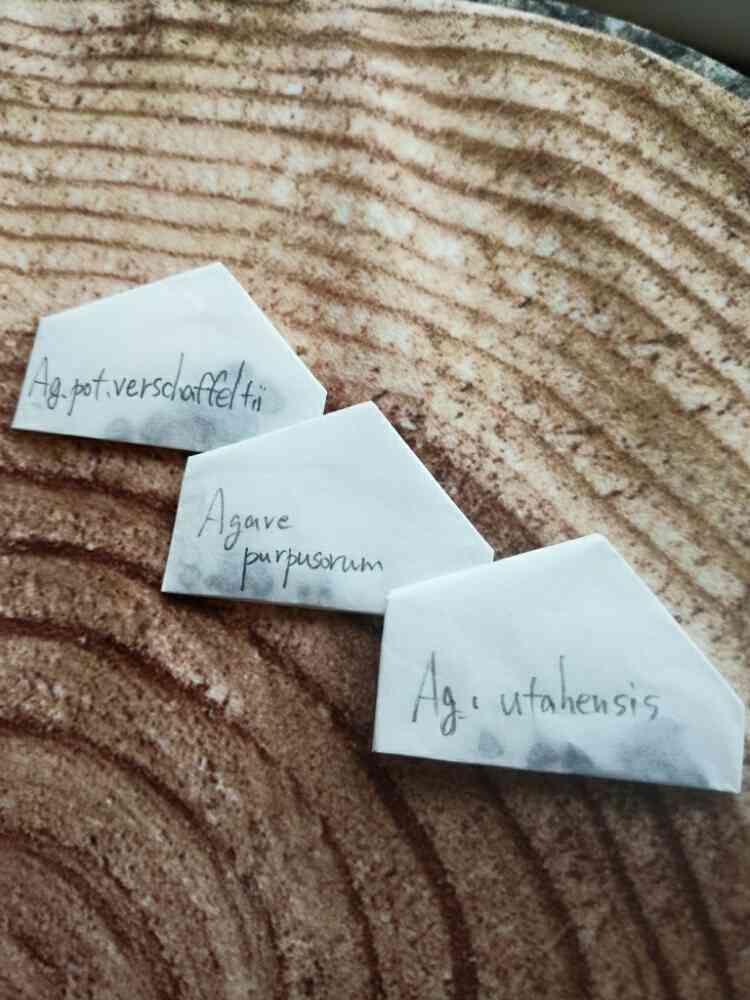 Ag.pot.verschaffeltii
Agave
purpusorum
Ag. utahensis